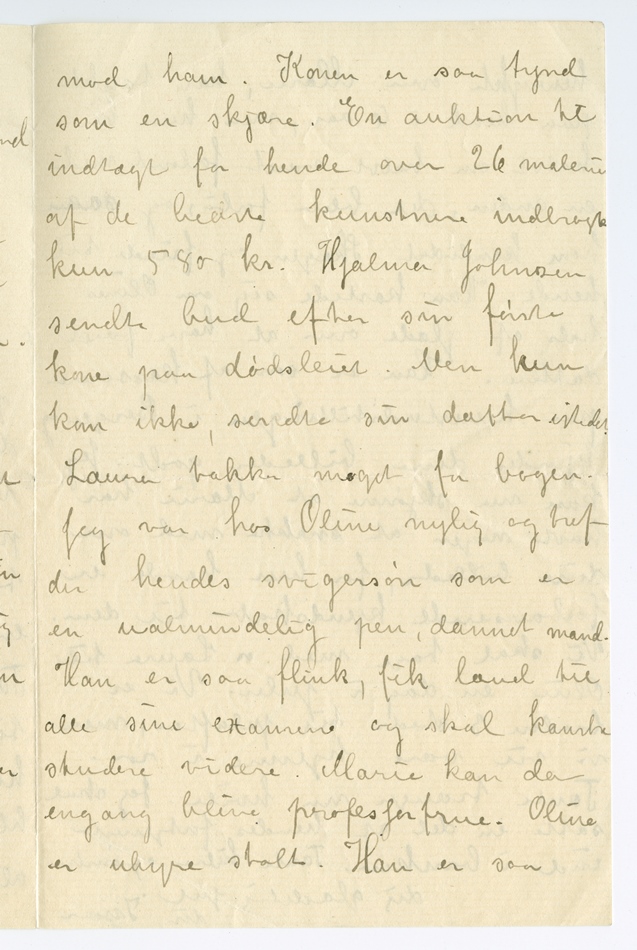 mod ham. Konen er saa tynd
som en skjære. En auktion til
indtægt for hende over 26 malerie
af de bedste kunstnere indbragte
kun 580 kr. Hjalmar Johnsen
sendte bud efter sin første
kone paa dødsleiet. Men hun
kom ikke, sendte sin datter istedet
Laura takker meget for bogen.
Jeg var hos Oline nylig og traf
der hendes svigersøn som er
en ualmindelig pen, dannet mand.
Han er saa flink, fik laud til
alle sine examener og skal kanske
studere videre. Marie kan da
engang blive professorfrue. Oline
er uhyre stolt. Han er saa